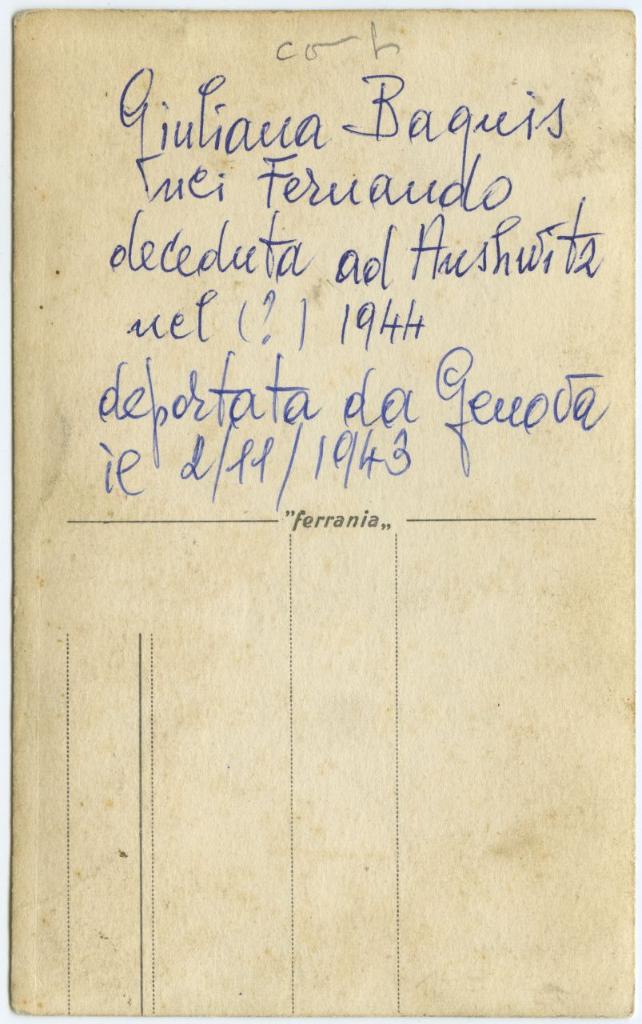 Giuliana Baquis
Fernando
deceduta ad Aushwitz
nel (?) 1944
deportata da Genova
il 2/11/1943
"ferrania„